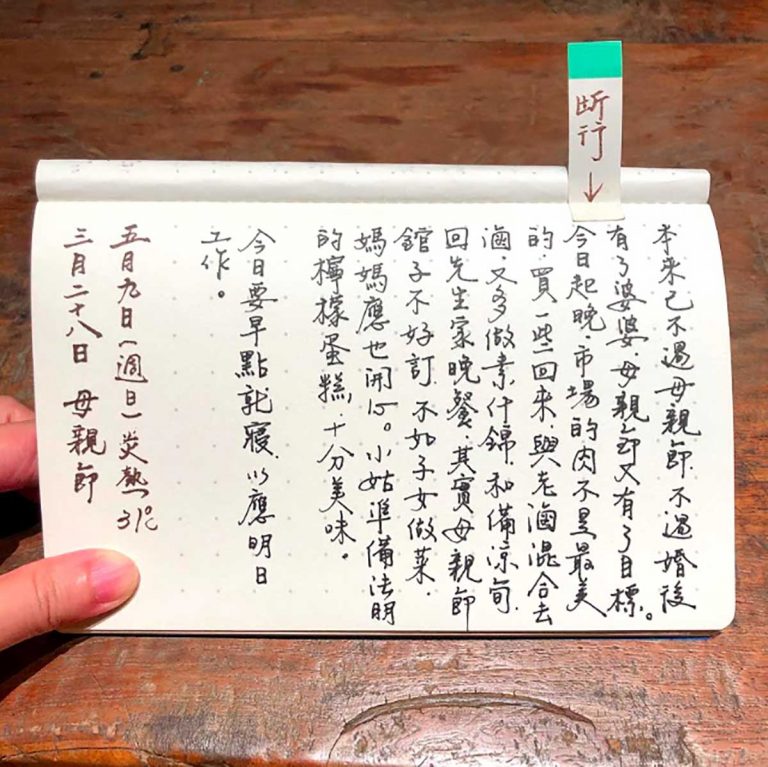 断行↓
本来已不過母親節,不過婚後
有了婆婆,母親節又有了目標。
今日起晚,市場的肉不是最美
的,買一些回來,與老滷混合去
滷,又多做素什錦,和備涼旬,
回先生家晚餐,其實母親節
館子不好訂,不如子女做菜,
媽媽應也開心。小姑準備法明
的檸檬蛋糕,十分美味。
今日要早點就寢,以應明日
工作。
五月九日(週日)炎熱 31℃
三月二十八日 母親節